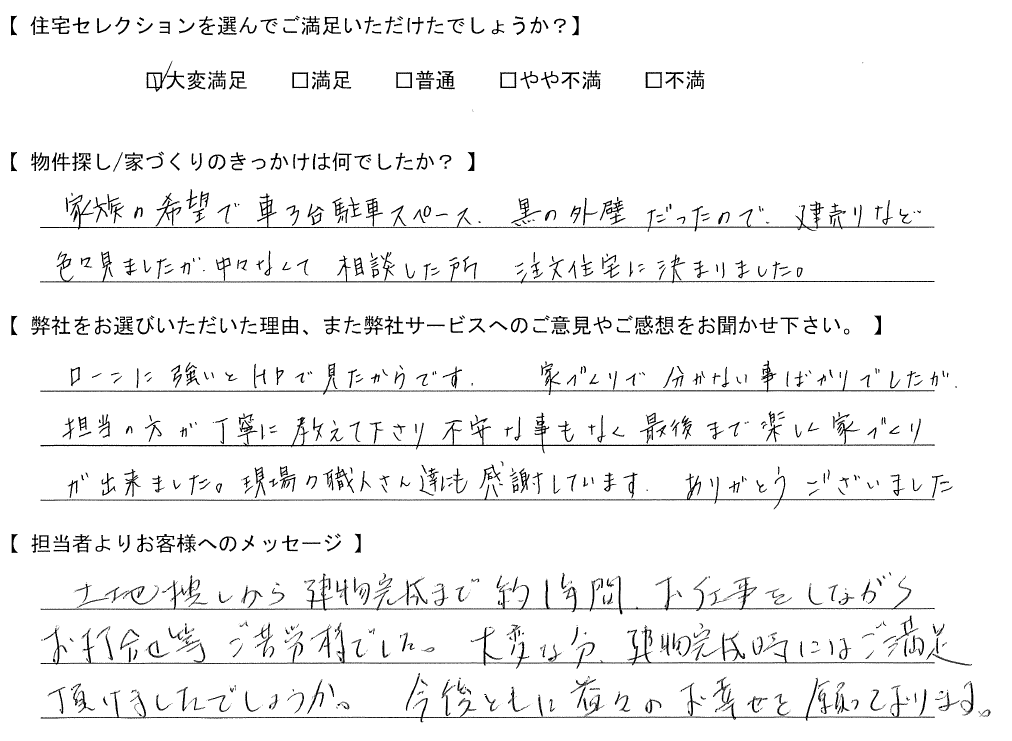 【 住宅セレクションを選んでご満足いただけたでしょうか？】
☑大変満足 □満足 □普通 □やや不満 □不満
【 物件探し/家づくりのきっかけは何でしたか？ 】
家族の希望で車3台駐車スペース、黒の外壁だったので、建売りなど
色々見ましたが、中々なくて 相談した所 注文住宅に決まりました。
【 弊社をお選びいただいた理由、また弊社サービスへのご意見やご感想をお聞かせ下さい。 】
ローンに強いとHPで見たからです。 家づくりで分かない事ばかりでしたが、
担当の方が丁寧に教えて下さり不安な事もなく最後まで楽しく家づくり
が出来ました。現場の職人さん達にも感謝しています。 ありがとうございました
【 担当者よりお客様へのメッセージ 】
土地探しから建物完成まで約1年間、お仕事をしながら
お打合せ等ご苦労様でした。大変な分、建物完成時にはご満足
頂けましたでしょうか。 今後ともに益々のお幸せを願っております。